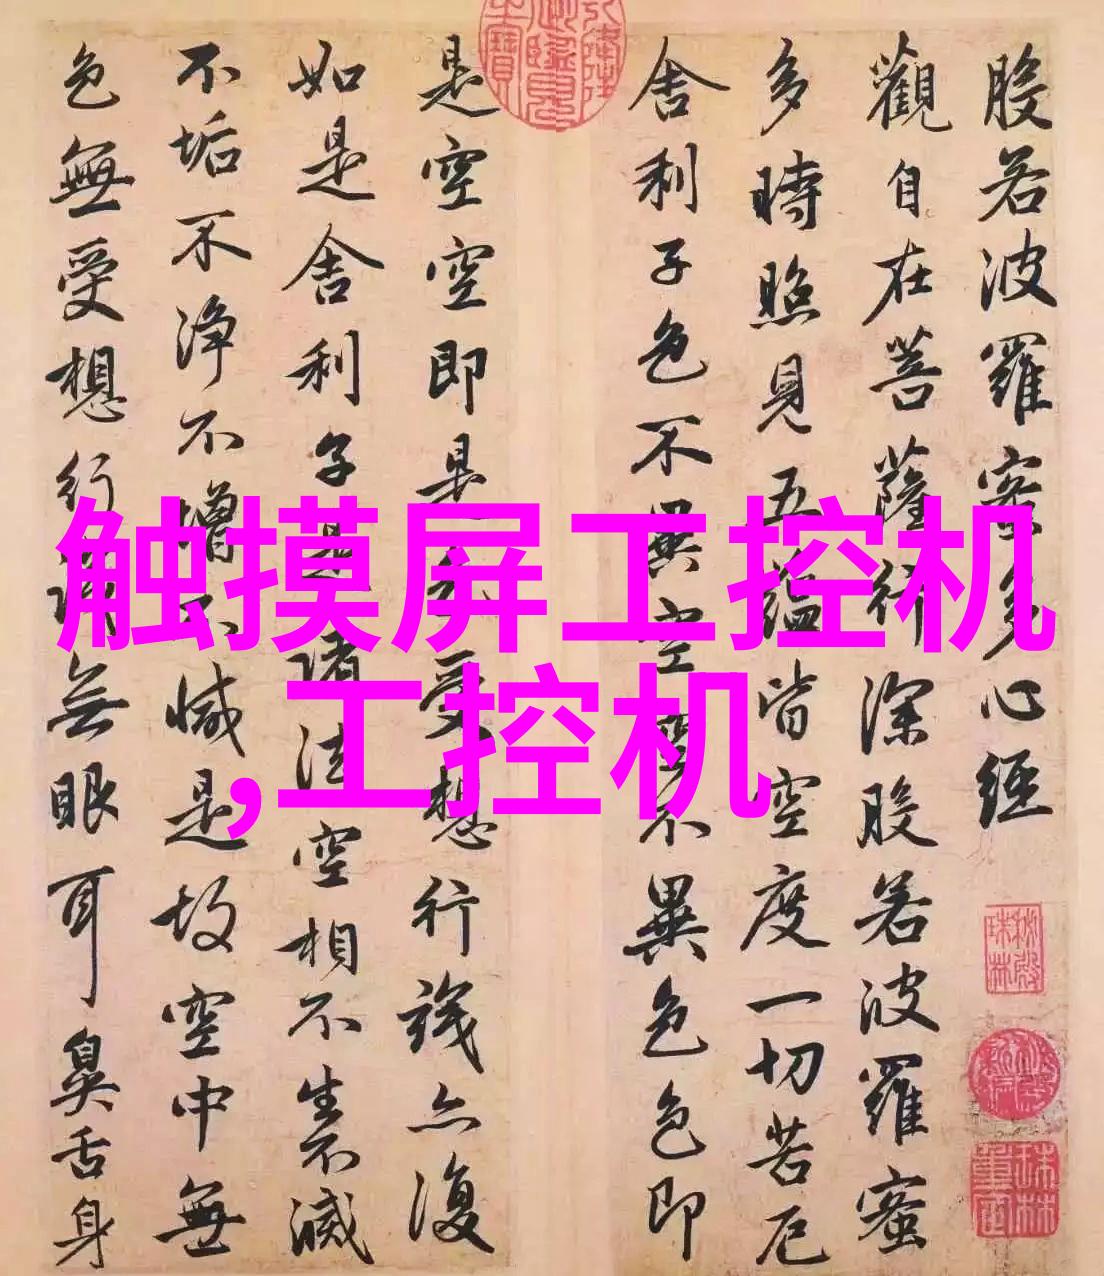 般若波羅蜜多心經
觀自在菩薩行深般若波羅蜜
多時照見五蘊皆空度一切苦厄
舍利子色不異空空不異色色即
是空空即是色受想行識亦復
如是舍利子是諸法空相不生不滅
不垢不淨不增不減是故空中無
色無受想行識無眼耳鼻舌身
触摸屏工控机
,工控机